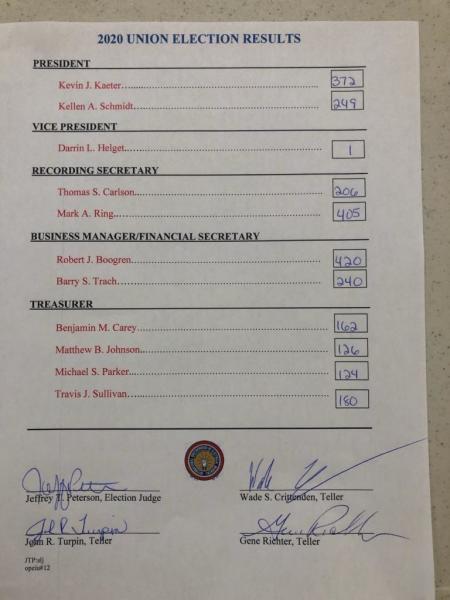 2020 UNION ELECTION RESULTS
PRESIDENT
Kevin J. Kaeter 372
Kellen A. Schmidt 249
VICE PRESIDENT
Darrin L. Helget 1
RECORDING SECRETARY
Thomas S. Carlson 206
Mark A. Ring 405
BUSINESS MANAGER/FINANCIAL SECRETARY
Robert J. Boogren 420
Barry S. Trach 240
TREASURER
Benjamin M. Carey 162
Matthew B. Johnson 126
Michael S. Parker 124
Travis J. Sullivan 180
Jeffrey T. Peterson, Election Judge
Wade S. Crittenden, Teller
John R. Turpin, Teller
Gene Richter, Teller
JTP:slj
opeiu#12